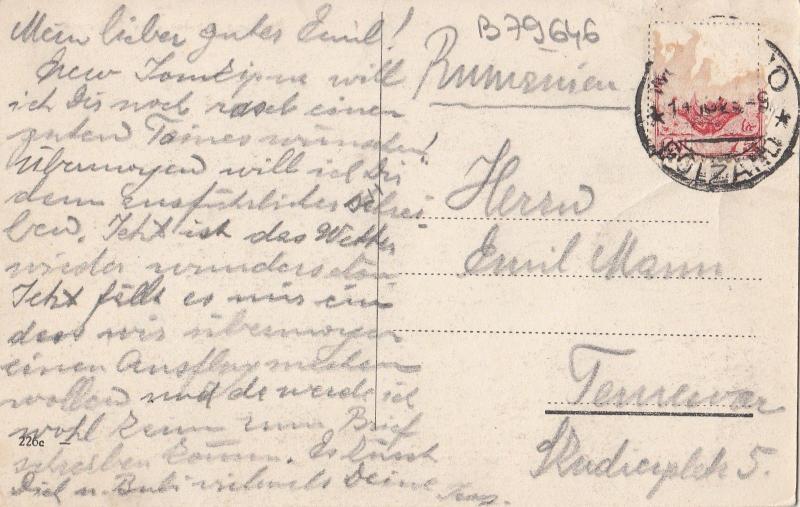 Mein lieber gutes Emil!
Erew Jomkipur will
ich Dir noch rasch einen
guten Taines wünschen!
Übermorgen will ich Dir
dann ausführlicher schrei-
ben. Jetzt ist das Wetter
wieder wunderschön
Jetzt fällt es mir ein
dass wir übermorgen
einen Ausflug machen
wollen und da werde ich
wohl kaum zum Brief
schreiben kommen. Es küsst
Dich u. Bubi vielmals Deine
B79646
Rumänien
BOLZANO
Herrn
Emil Mann
Temesvar
5.
226c